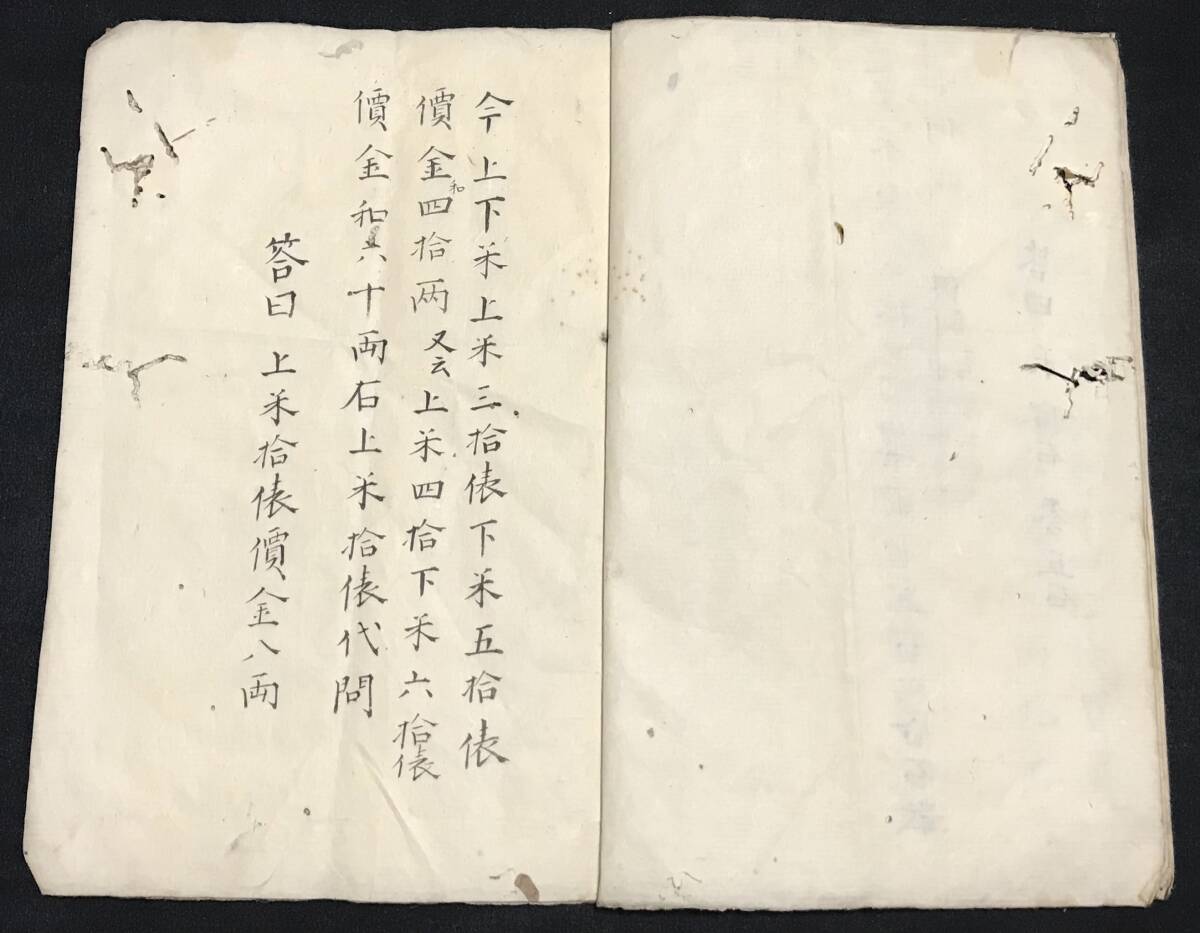 今上下米上米三拾俵下米五拾俵
價金和四拾两又云上米四拾下米六拾俵
價金和六十両右上米拾俵代問
答曰 上米拾俵價金八両